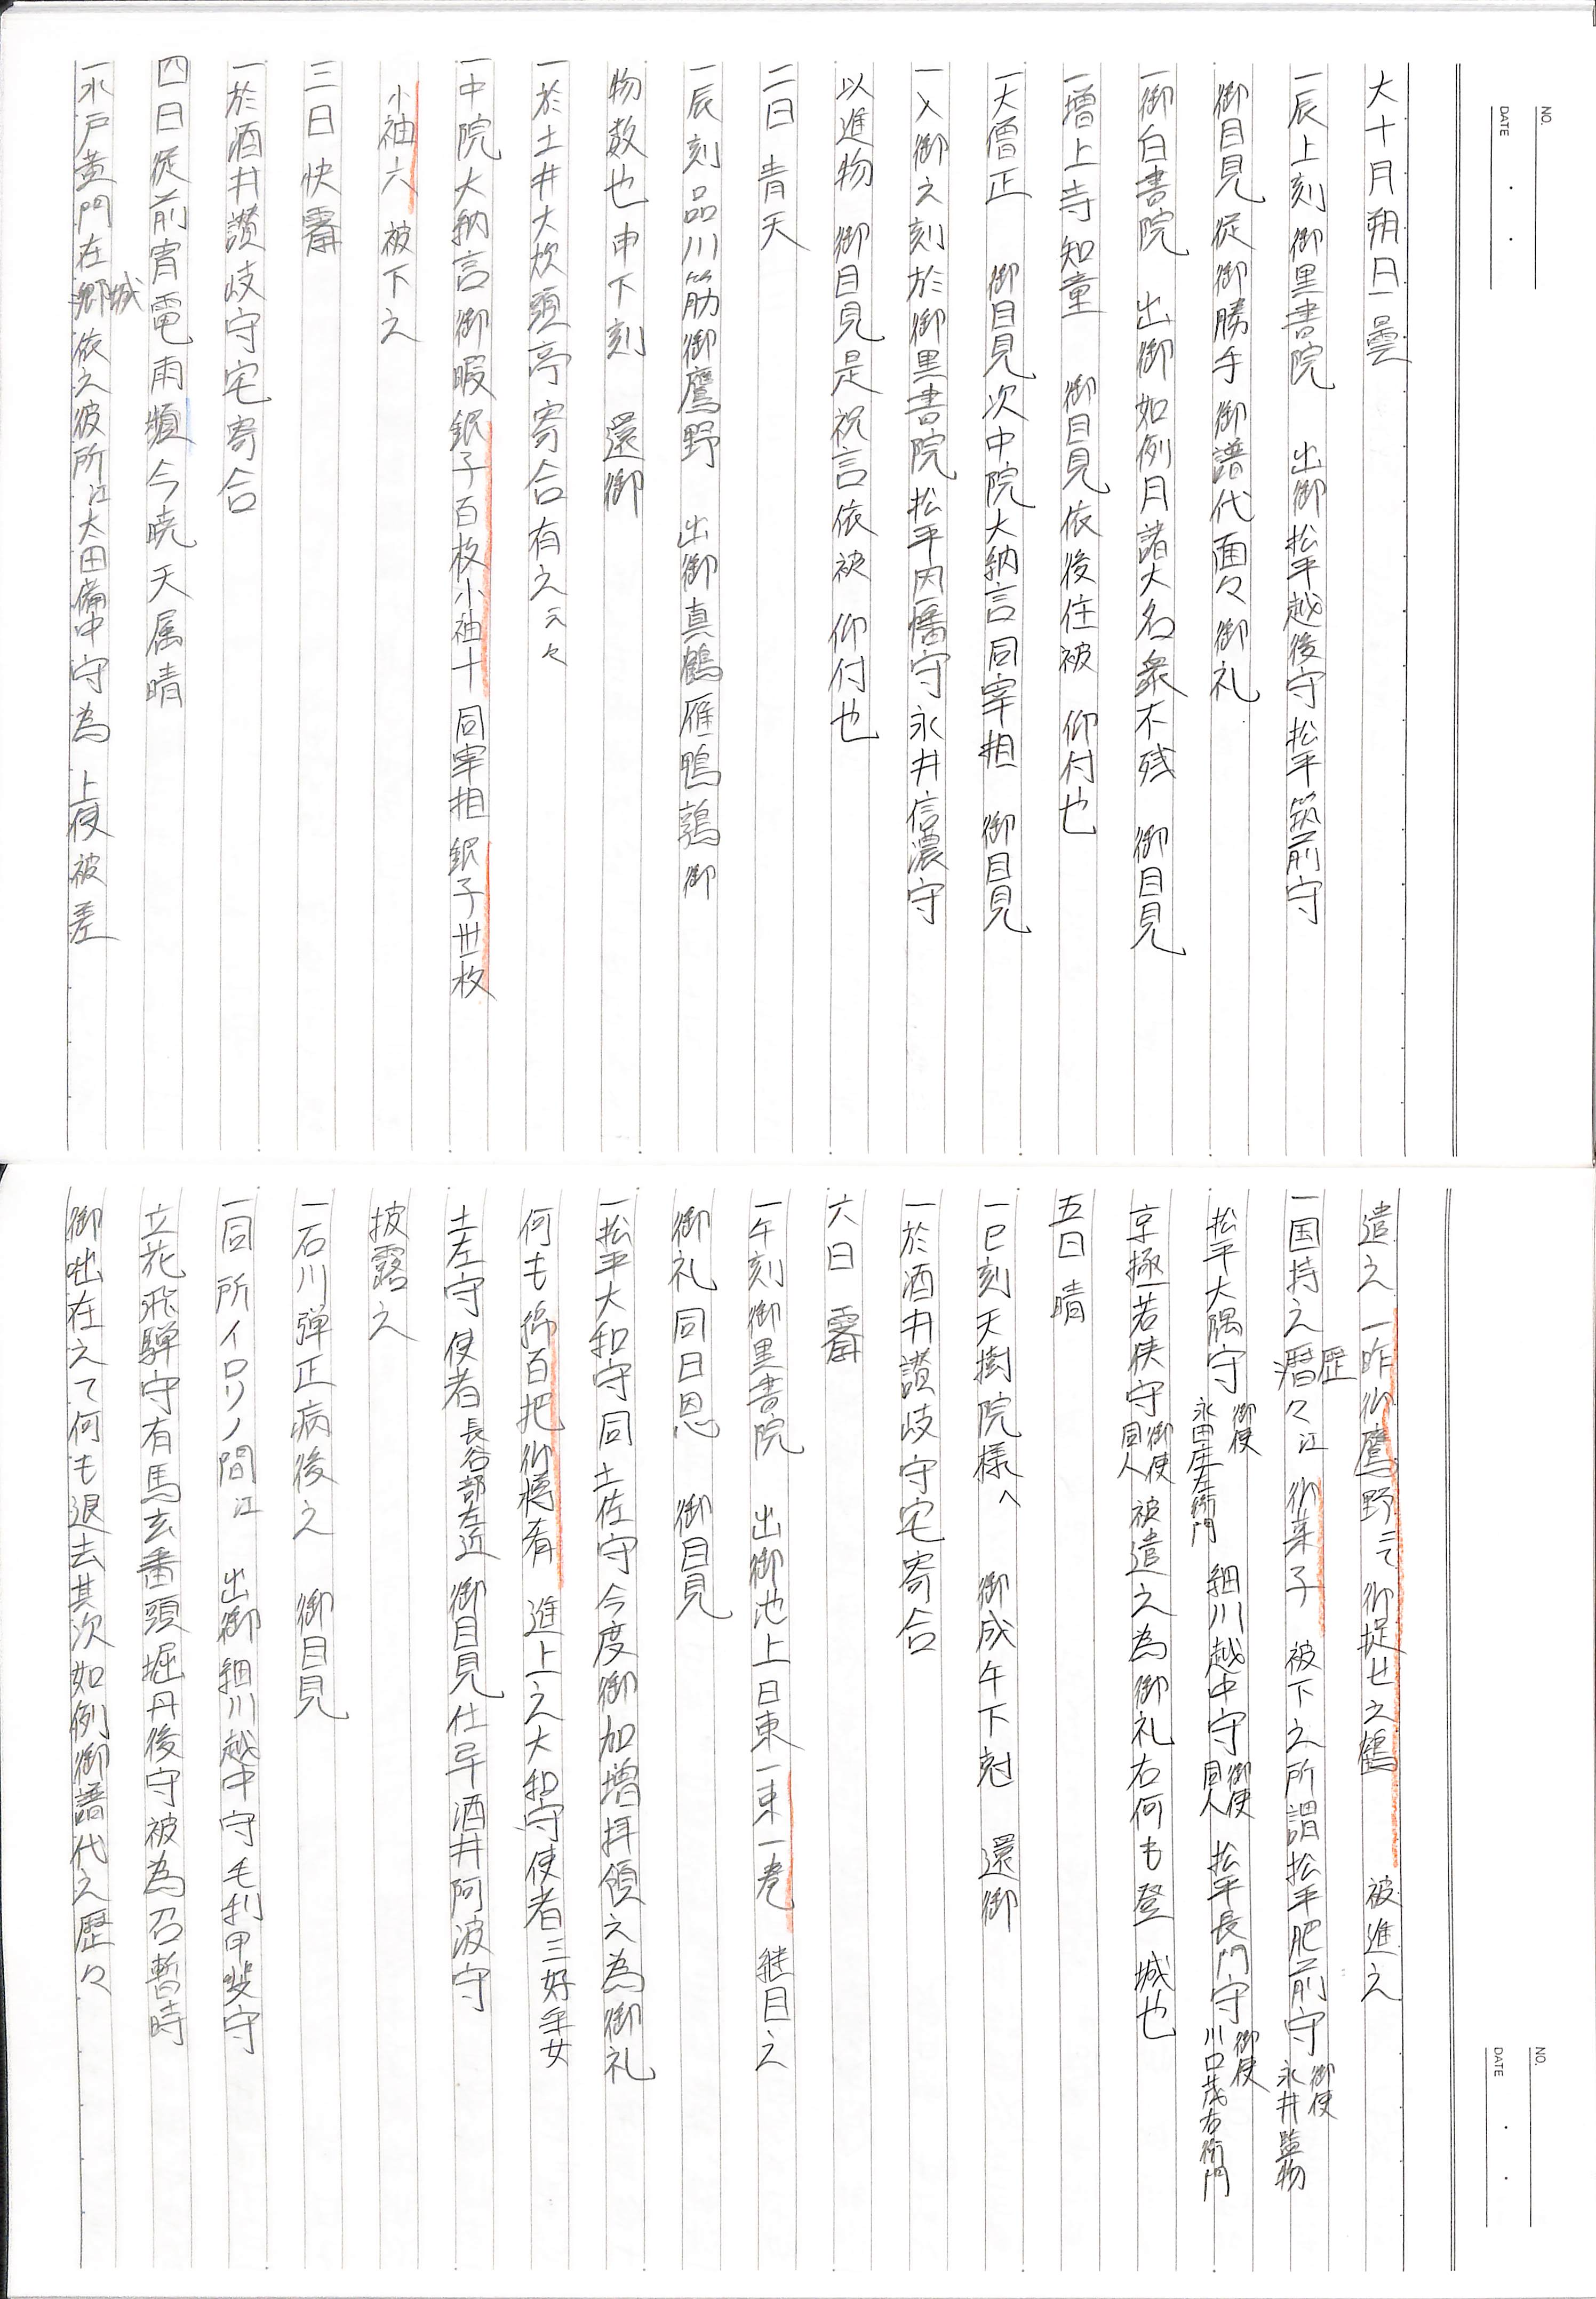 NO.
DATE ・ ・
大十月朔日 曇
一辰上刻御黒書院 出御松平越後守松平筑前守
御目見従御勝手御譜代面々御礼
一御白書院 出御如例月諸大名衆不残 御目見
一増上寺知童 御目見依後住被 仰付也
一大僧正 御目見次中院大納言同宰相 御目見
一入御之刻於御黒書院松平因幡守永井信濃守
以進物 御目見是祝言依被 仰付也
二日 青天
一辰刻品川筋御鷹野 出御真鶴雁鴨鶉御
物数也申下刻 還御
一於土井大炊頭亭寄合有之云々
一中院大納言御暇銀子百枚小袖十 同宰相銀子卅枚
小袖六 被下之
三日 快霽
一於酒井讃岐守宅寄合
四日従前宵電雨頻今暁天属晴
一水戸黄門在郷城依之彼所江太田備中守為 上使被差
NO.
DATE ・ ・
遣之一昨御鷹野ニ而御捉せ之鶴 被進之
一国持之暦歴々江 御菓子 被下之所謂松平肥前守御使永井監物
松平大隅守御使永田庄左衛門 細川越中守御使同人 松平長門守御使川口茂右衛門
京極若狭守御使同人 被遣之為御礼右何も登 城也
五日 晴
一巳刻天樹院様へ 御成午下剋 還御
一於酒井讃岐守宅寄合
六日 霽
一午刻御黒書院 出御池上日東一束一巻 継目之
御礼同日恩 御目見
一松平大和守同土佐守今度御加増拝領之為御礼
何も綿百把御樽肴 進上之大和守使者三好采女
土左守使者長谷部左近 御目見仕早酒井阿波守
披露之
一石川弾正病後之 御目見
一同所イロリノ間江 出御細川越中守毛利甲斐守
立花飛騨守有馬玄番頭堀丹後守被為召暫時
御咄在之て何も退去其次如例御譜代之歴々